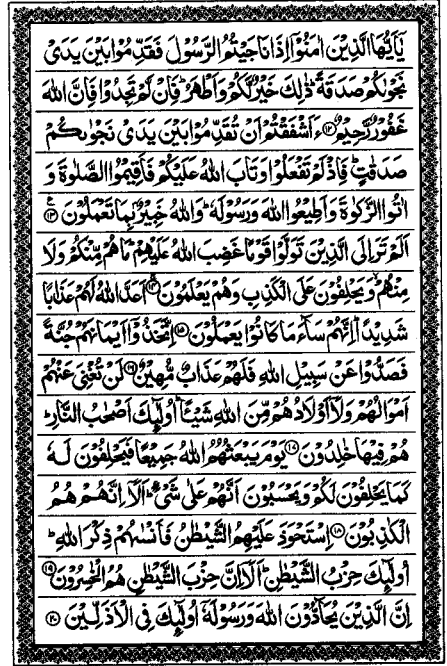 يٰۤاَيُّهَا الَّذِيْنَ اٰمَنُوْۤا اِذَا نَاجَيْتُمُ الرَّسُوْلَ فَقَدِّمُوْا بَيْنَ يَدَيْ
نَجْوٰىكُمْ صَدَقَةً ؕ ذٰلِكَ خَيْرٌ لَّكُمْ وَاَطْهَرُ ؕ فَاِنْ لَّمْ تَجِدُوْا فَاِنَّ اللّٰهَ
غَفُوْرٌ رَّحِيْمٌ ۝۱۲ ءَاَشْفَقْتُمْ اَنْ تُقَدِّمُوْا بَيْنَ يَدَيْ نَجْوٰىكُمْ
صَدَقٰتٍ ؕ فَاِذْ لَمْ تَفْعَلُوْا وَتَابَ اللّٰهُ عَلَيْكُمْ فَاَقِيْمُوا الصَّلٰوةَ وَ
اٰتُوا الزَّكٰوةَ وَاَطِيْعُوا اللّٰهَ وَرَسُوْلَهٗ ؕ وَاللّٰهُ خَبِيْرٌۢ بِمَا تَعْمَلُوْنَ ۝۱۳
اَلَمْ تَرَ اِلَى الَّذِيْنَ تَوَلَّوْا قَوْمًا غَضِبَ اللّٰهُ عَلَيْهِمْ ؕ مَا هُمْ مِّنْكُمْ وَلَا
مِنْهُمْ ۙ وَيَحْلِفُوْنَ عَلَى الْكَذِبِ وَهُمْ يَعْلَمُوْنَ ۝۱۴ اَعَدَّ اللّٰهُ لَهُمْ عَذَابًا
شَدِيْدًا ؕ اِنَّهُمْ سَآءَ مَا كَانُوْا يَعْمَلُوْنَ ۝۱۵ اِتَّخَذُوْۤا اَيْمَانَهُمْ جُنَّةً
فَصَدُّوْا عَنْ سَبِيْلِ اللّٰهِ فَلَهُمْ عَذَابٌ مُّهِيْنٌ ۝۱۶ لَنْ تُغْنِيَ عَنْهُمْ
اَمْوَالُهُمْ وَلَاۤ اَوْلَادُهُمْ مِّنَ اللّٰهِ شَيْئًا ؕ اُولٰٓئِكَ اَصْحٰبُ النَّارِ ؕ
هُمْ فِيْهَا خٰلِدُوْنَ ۝۱۷ يَوْمَ يَبْعَثُهُمُ اللّٰهُ جَمِيْعًا فَيَحْلِفُوْنَ لَهٗ
كَمَا يَحْلِفُوْنَ لَكُمْ وَيَحْسَبُوْنَ اَنَّهُمْ عَلٰى شَيْءٍ ؕ اَلَاۤ اِنَّهُمْ هُمُ
الْكٰذِبُوْنَ ۝۱۸ اِسْتَحْوَذَ عَلَيْهِمُ الشَّيْطٰنُ فَاَنْسٰىهُمْ ذِكْرَ اللّٰهِ ؕ
اُولٰٓئِكَ حِزْبُ الشَّيْطٰنِ ؕ اَلَاۤ اِنَّ حِزْبَ الشَّيْطٰنِ هُمُ الْخٰسِرُوْنَ ۝۱۹
اِنَّ الَّذِيْنَ يُحَآدُّوْنَ اللّٰهَ وَرَسُوْلَهٗۤ اُولٰٓئِكَ فِي الْاَذَلِّيْنَ ۝۲۰